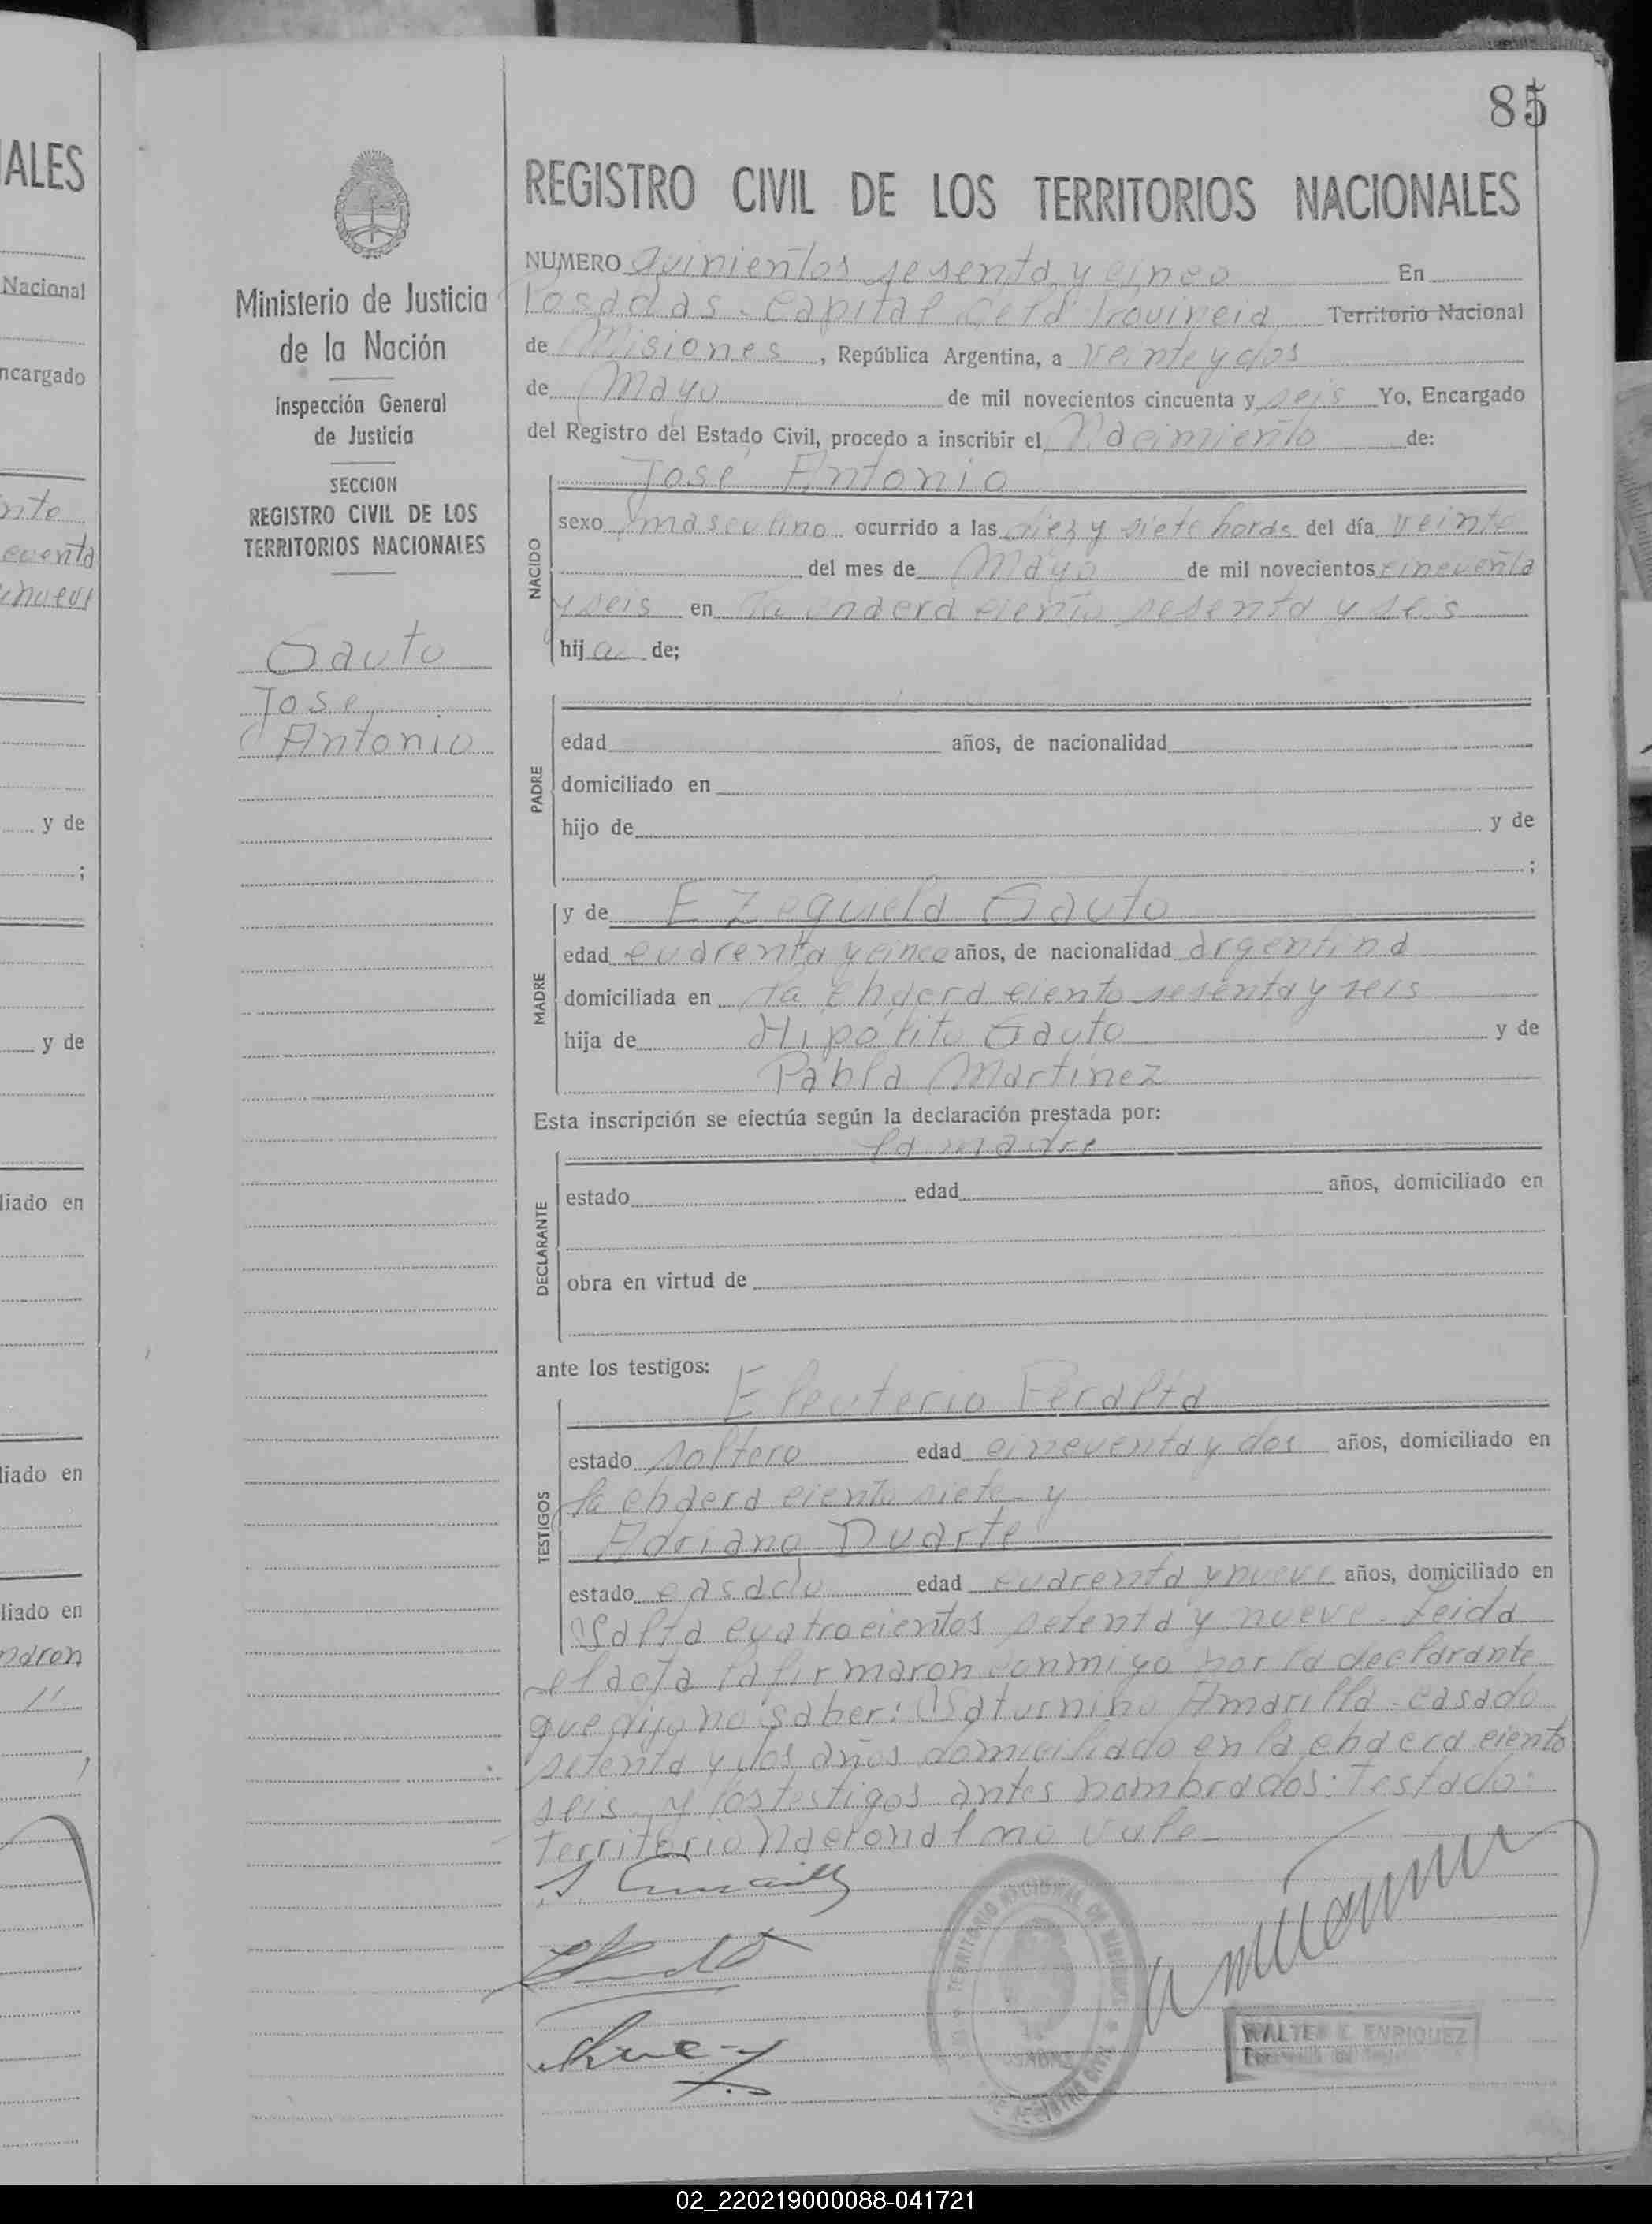 85
IALES
Nacional
ncargado
nto
cuenta
y de
;
y de
liado en
liado en
liado en
maron
Ministerio de Justicia
de la Nación
Inspección General
de Justicia
SECCION
REGISTRO CIVIL DE LOS
TERRITORIOS NACIONALES
Gauto
José
Antonio
REGISTRO CIVIL DE LOS TERRITORIOS NACIONALES
NUMERO Quinientos sesenta y cinco En
Posadas. Capital de la Provincia Territorio Nacional
de Misiones, República Argentina, a veinte y dos
de Mayo de mil novecientos cincuenta y seis Yo, Encargado
del Registro del Estado Civil, procedo a inscribir el Nacimiento de:
José Antonio
NACIDO
sexo masculino ocurrido a las diez y siete horas del día veinte
del mes de Mayo de mil novecientos cincuenta
y seis en la chacra ciento sesenta y seis
hijo de;
PADRE
edad años, de nacionalidad
domiciliado en
hijo de y de
;
MADRE
y de Ezequiela Gauto
edad cuarenta y cinco años, de nacionalidad argentina
domiciliada en la chacra ciento sesenta y seis
hija de Hipólito Gauto y de
Pabla Martinez
Esta inscripción se efectúa según la declaración prestada por:
la madre
DECLARANTE
estado edad años, domiciliado en
obra en virtud de
ante los testigos:
TESTIGOS
Eleuterio Peralta
estado soltero edad cincuenta y dos años, domiciliado en
la chacra ciento siete y
Adriano Duarte
estado casado edad cuarenta y nueve años, domiciliado en
Salta cuatrocientos setenta y nueve. Leida
el acta la firmaron conmigo por la declarante
que dijo no saber: Saturnino Amarilla casado
setenta y dos años domiciliado en la chacra ciento
seis y los testigos antes nombrados: Testado:
Territorio Nacional no vale
TERRITORIO NACIONAL DE MISIONES
REGISTRO CIVIL
WALTER E. ENRIQUEZ
02_220219000088-041721